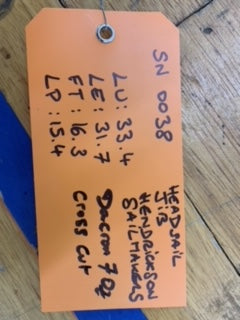 SN 0038
HEADSAIL
JIB
HENDRICKSON
SAILMAKERS
LU: 33.4
LE: 31.7
FT: 16.3
LP: 15.4
Dacron 7 Oz
Cross Cut